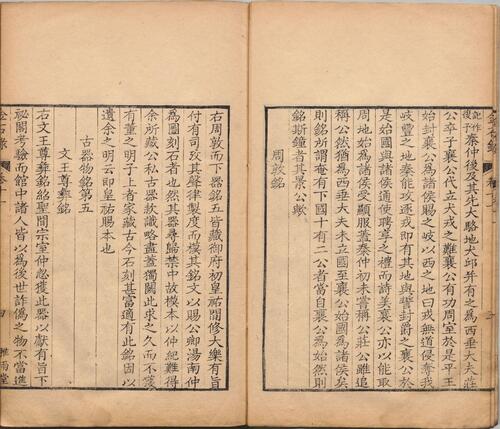 復子秦仲後及其先大駱地犬邱并有之爲西垂大夫莊
公卒子襄公代立犬戎之難襄公有功周室於是平王
始封襄公爲諸侯賜之岐以西之地曰戎無道侵奪我
岐豐之地秦能攻逐戎即有其地與誓封爵之襄公於
是始國與諸侯通使聘享之禮而詩美襄公亦以能取
周地始爲諸侯受顯服蓋秦仲初未嘗稱公莊公雖追
稱公然猶爲西垂大夫未立國至襄公始國爲諸侯矣
則銘所謂奄有下國十有二公者當自襄公爲始然則
銘斯鐘者其景公歟
周敦銘
右周敦而下器銘五皆藏御府初皇祐間修大樂有旨
付有司攷其聲律制度而模其銘文以賜公卿湯南仲
爲圖刻石者也然其器尋歸禁中故模本以仲紀難得
余所藏公私古器款識略盡蓋獨闕此求之久而不獲
有董之明子上者家藏古今石刻甚富適有此銘因以
遺余之明云即皇祐賜本也
古器物銘第五
文王尊彝銘
右文王尊彝銘紹聖間宗室仲忽獲此器以獻有旨下
祕閣考驗而館中諸人皆以爲後世詐僞之物不當進
金石錄
四
雅雨堂